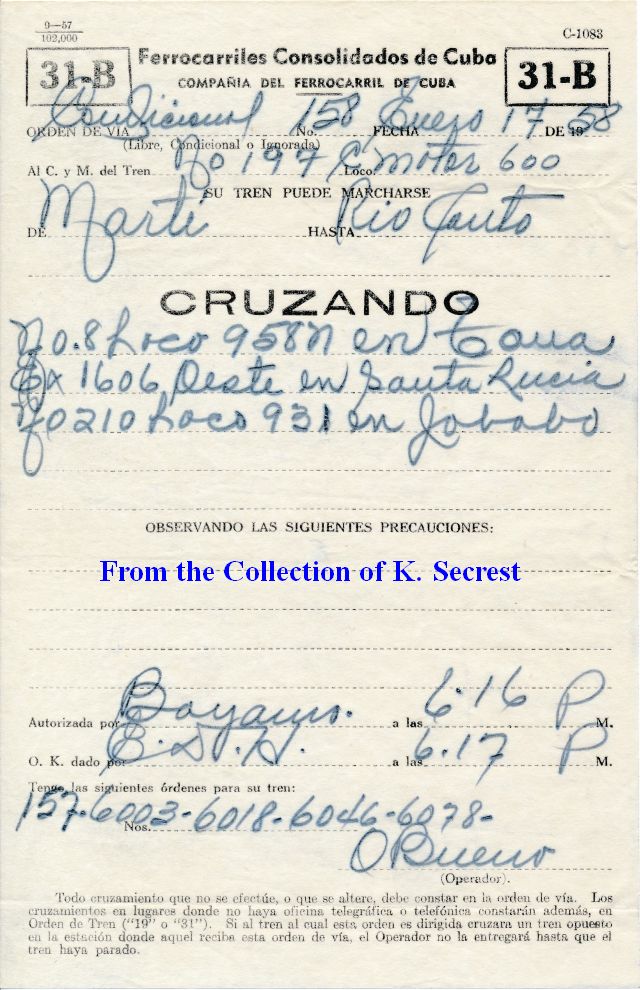 9—57
102,000
C-1083
31-B
Ferrocarriles Consolidados de Cuba
COMPAÑIA DEL FERROCARRIL DE CUBA
31-B
ORDEN DE VIA Condicional No. 158 FECHA Enero 17 DE 1958
(Libre, Condicional o Ignorada)
Al C. y M. del Tren No 197 Loco. C Motor 600
SU TREN PUEDE MARCHARSE
DE Marti HASTA Rio Cauto
CRUZANDO
No. 8 Loco 958 en
Ex 1606 Oeste en Santa Lucia
No 210 Loco 931 en Jobabo
OBSERVANDO LAS SIGUIENTES PRECAUCIONES:
From the Collection of K. Secrest
Autorizada por Bayamo. a las 6.16 P M.
O. K. dado por a las 6.17 P M.
Tengo las siguientes órdenes para su tren:
Nos. 157-6003-6018-6046-6078-
O Bueno
(Operador).
Todo cruzamiento que no se efectúe, o que se altere, debe constar en la orden de vía. Los
cruzamientos en lugares donde no haya oficina telegráfica o telefónica constarán además, en
Orden de Tren ("19" o "31"). Si al tren al cual esta orden es dirigida cruzara un tren opuesto
en la estación donde aquel reciba esta orden de vía, el Operador no la entregará hasta que el
tren haya parado.